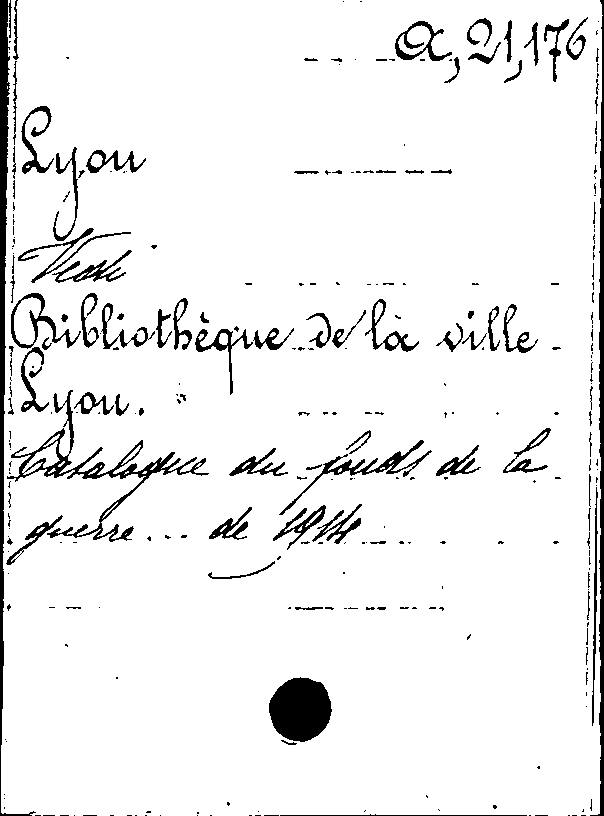 A, 21,176
Lyon
Bibliothèque de la ville
Lyon.
Catalogue du fonds de la
guerre... de 1914